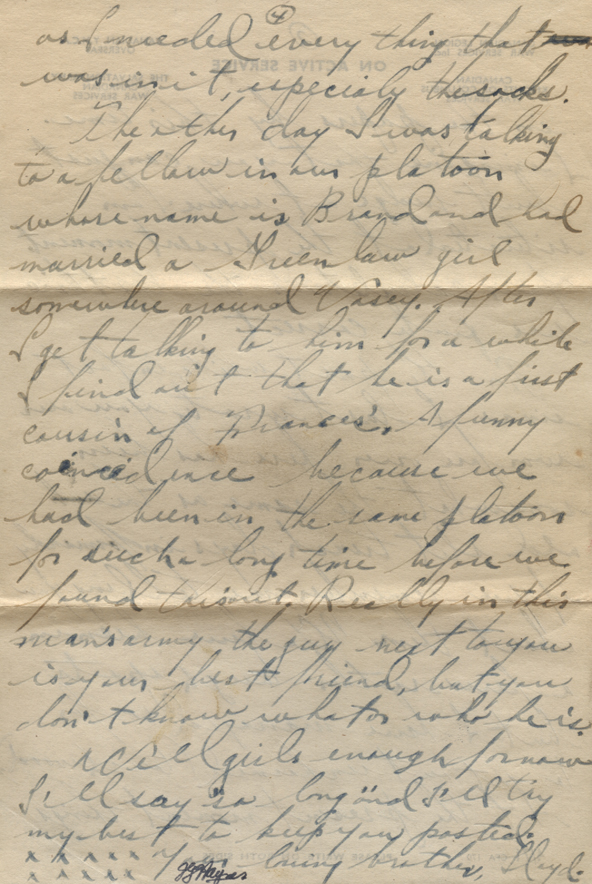 4
as I needed every thing that
was in it, especialy the socks.
The other day I was talking
to a fellow in our platoon
whose name is Brand and had
married a Greenlaw girl
somewhere around Vasey. After
I get talking to him for a while
I find out that he is a first
cousin of Frances'. A funny
coincidence because we
had been in the same platoon
for such a long time before we
found this out. Really in this
man's army the guy next to you
is your best friend, but you
don't know what or who he is.
Well girls enough for now
I'll say "so long" and I'll try
my best to keep you posted.
x x x x x Your loving brother, Lloyd.
x x x x x
ON ACTIVE SERVICE